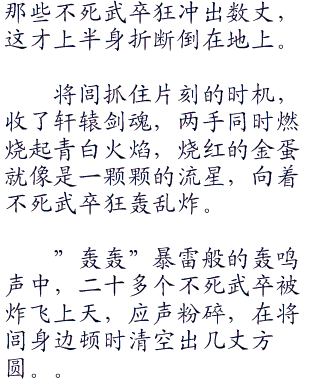 那些不死武卒狂冲出数丈，
这才上半身折断倒在地上。
将闾抓住片刻的时机，
收了轩辕剑魂，两手同时燃
烧起青白火焰，烧红的金蛋
就像是一颗颗的流星，向着
不死武卒狂轰乱炸。
”轰轰”暴雷般的轰鸣
声中，二十多个不死武卒被
炸飞上天，应声粉碎，在将
闾身边顿时清空出几丈方
圆。。